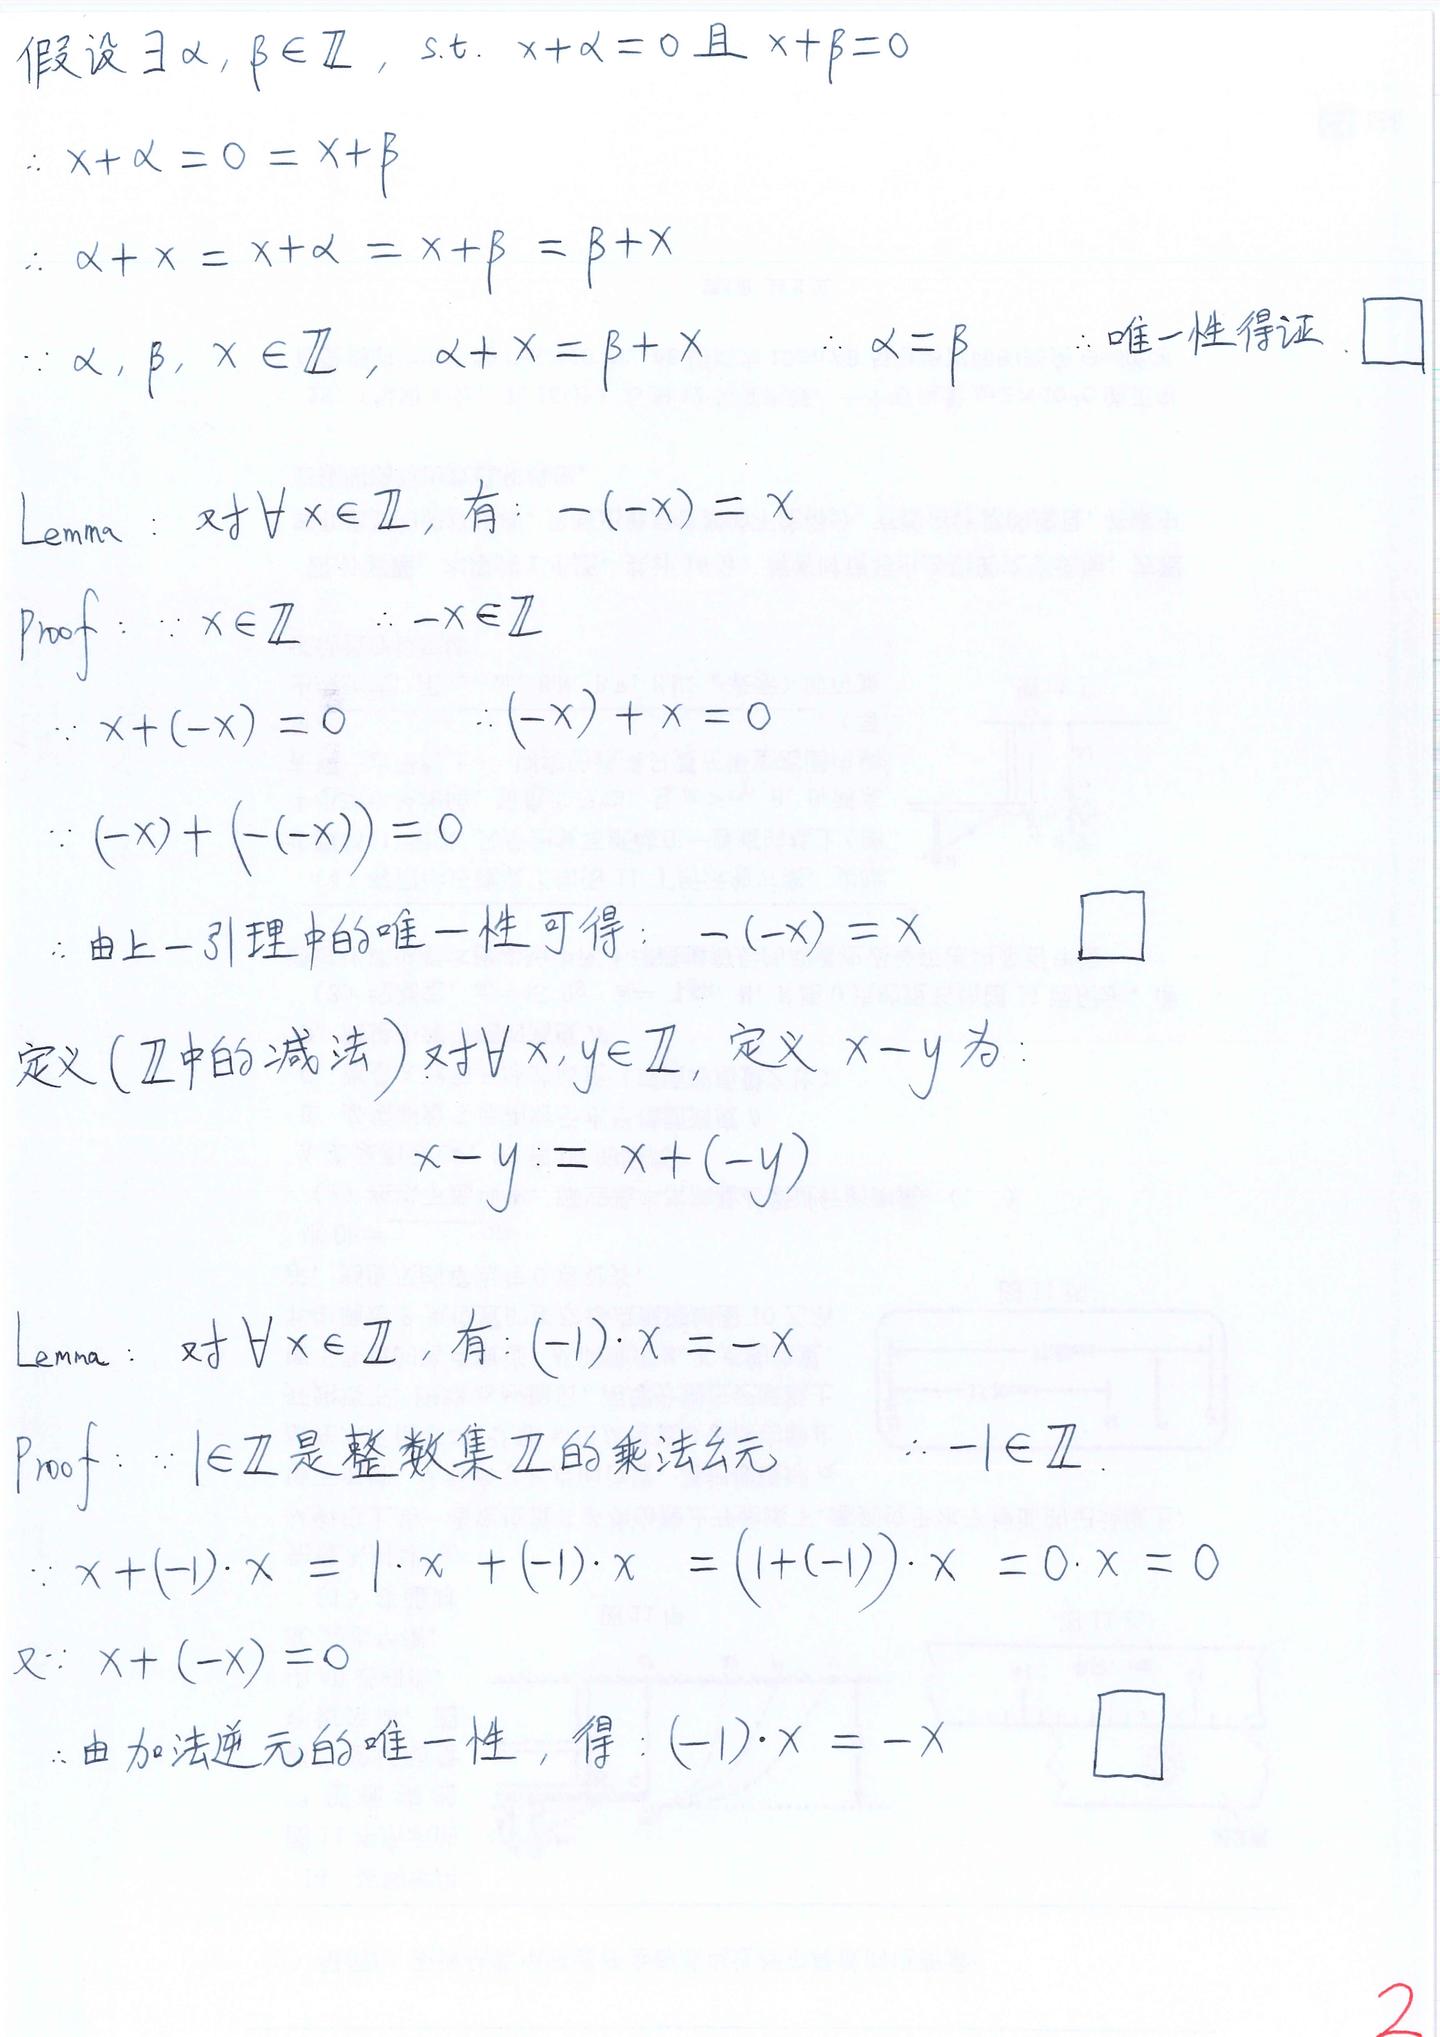 假设∃α, β∈ℤ, s.t. x+α=0 且 x+β=0
∴ x+α = 0 = x+β
∴ α+x = x+α = x+β = β+x
∵ α, β, x∈ℤ, α+x = β+x ∴ α=β ∴ 唯一性得证. □
Lemma: 对∀x∈ℤ, 有 -(-x) = x
Proof: ∵ x∈ℤ ∴ -x∈ℤ
∵ x+(-x) = 0 ∴ (-x)+x = 0
∵ (-x)+(-(-x)) = 0
∴ 由上一引理中的唯一性可得: -(-x) = x □
定义(ℤ中的减法) 对∀x, y∈ℤ, 定义 x-y 为:
x-y := x+(-y)
Lemma: 对∀x∈ℤ, 有: (-1)·x = -x
Proof: ∵ 1∈ℤ是整数集ℤ的乘法幺元 ∴ -1∈ℤ.
∵ x+(-1)·x = 1·x +(-1)·x = (1+(-1))·x = 0·x = 0
又∵ x+(-x) = 0
∴ 由加法逆元的唯一性, 得: (-1)·x = -x □
2